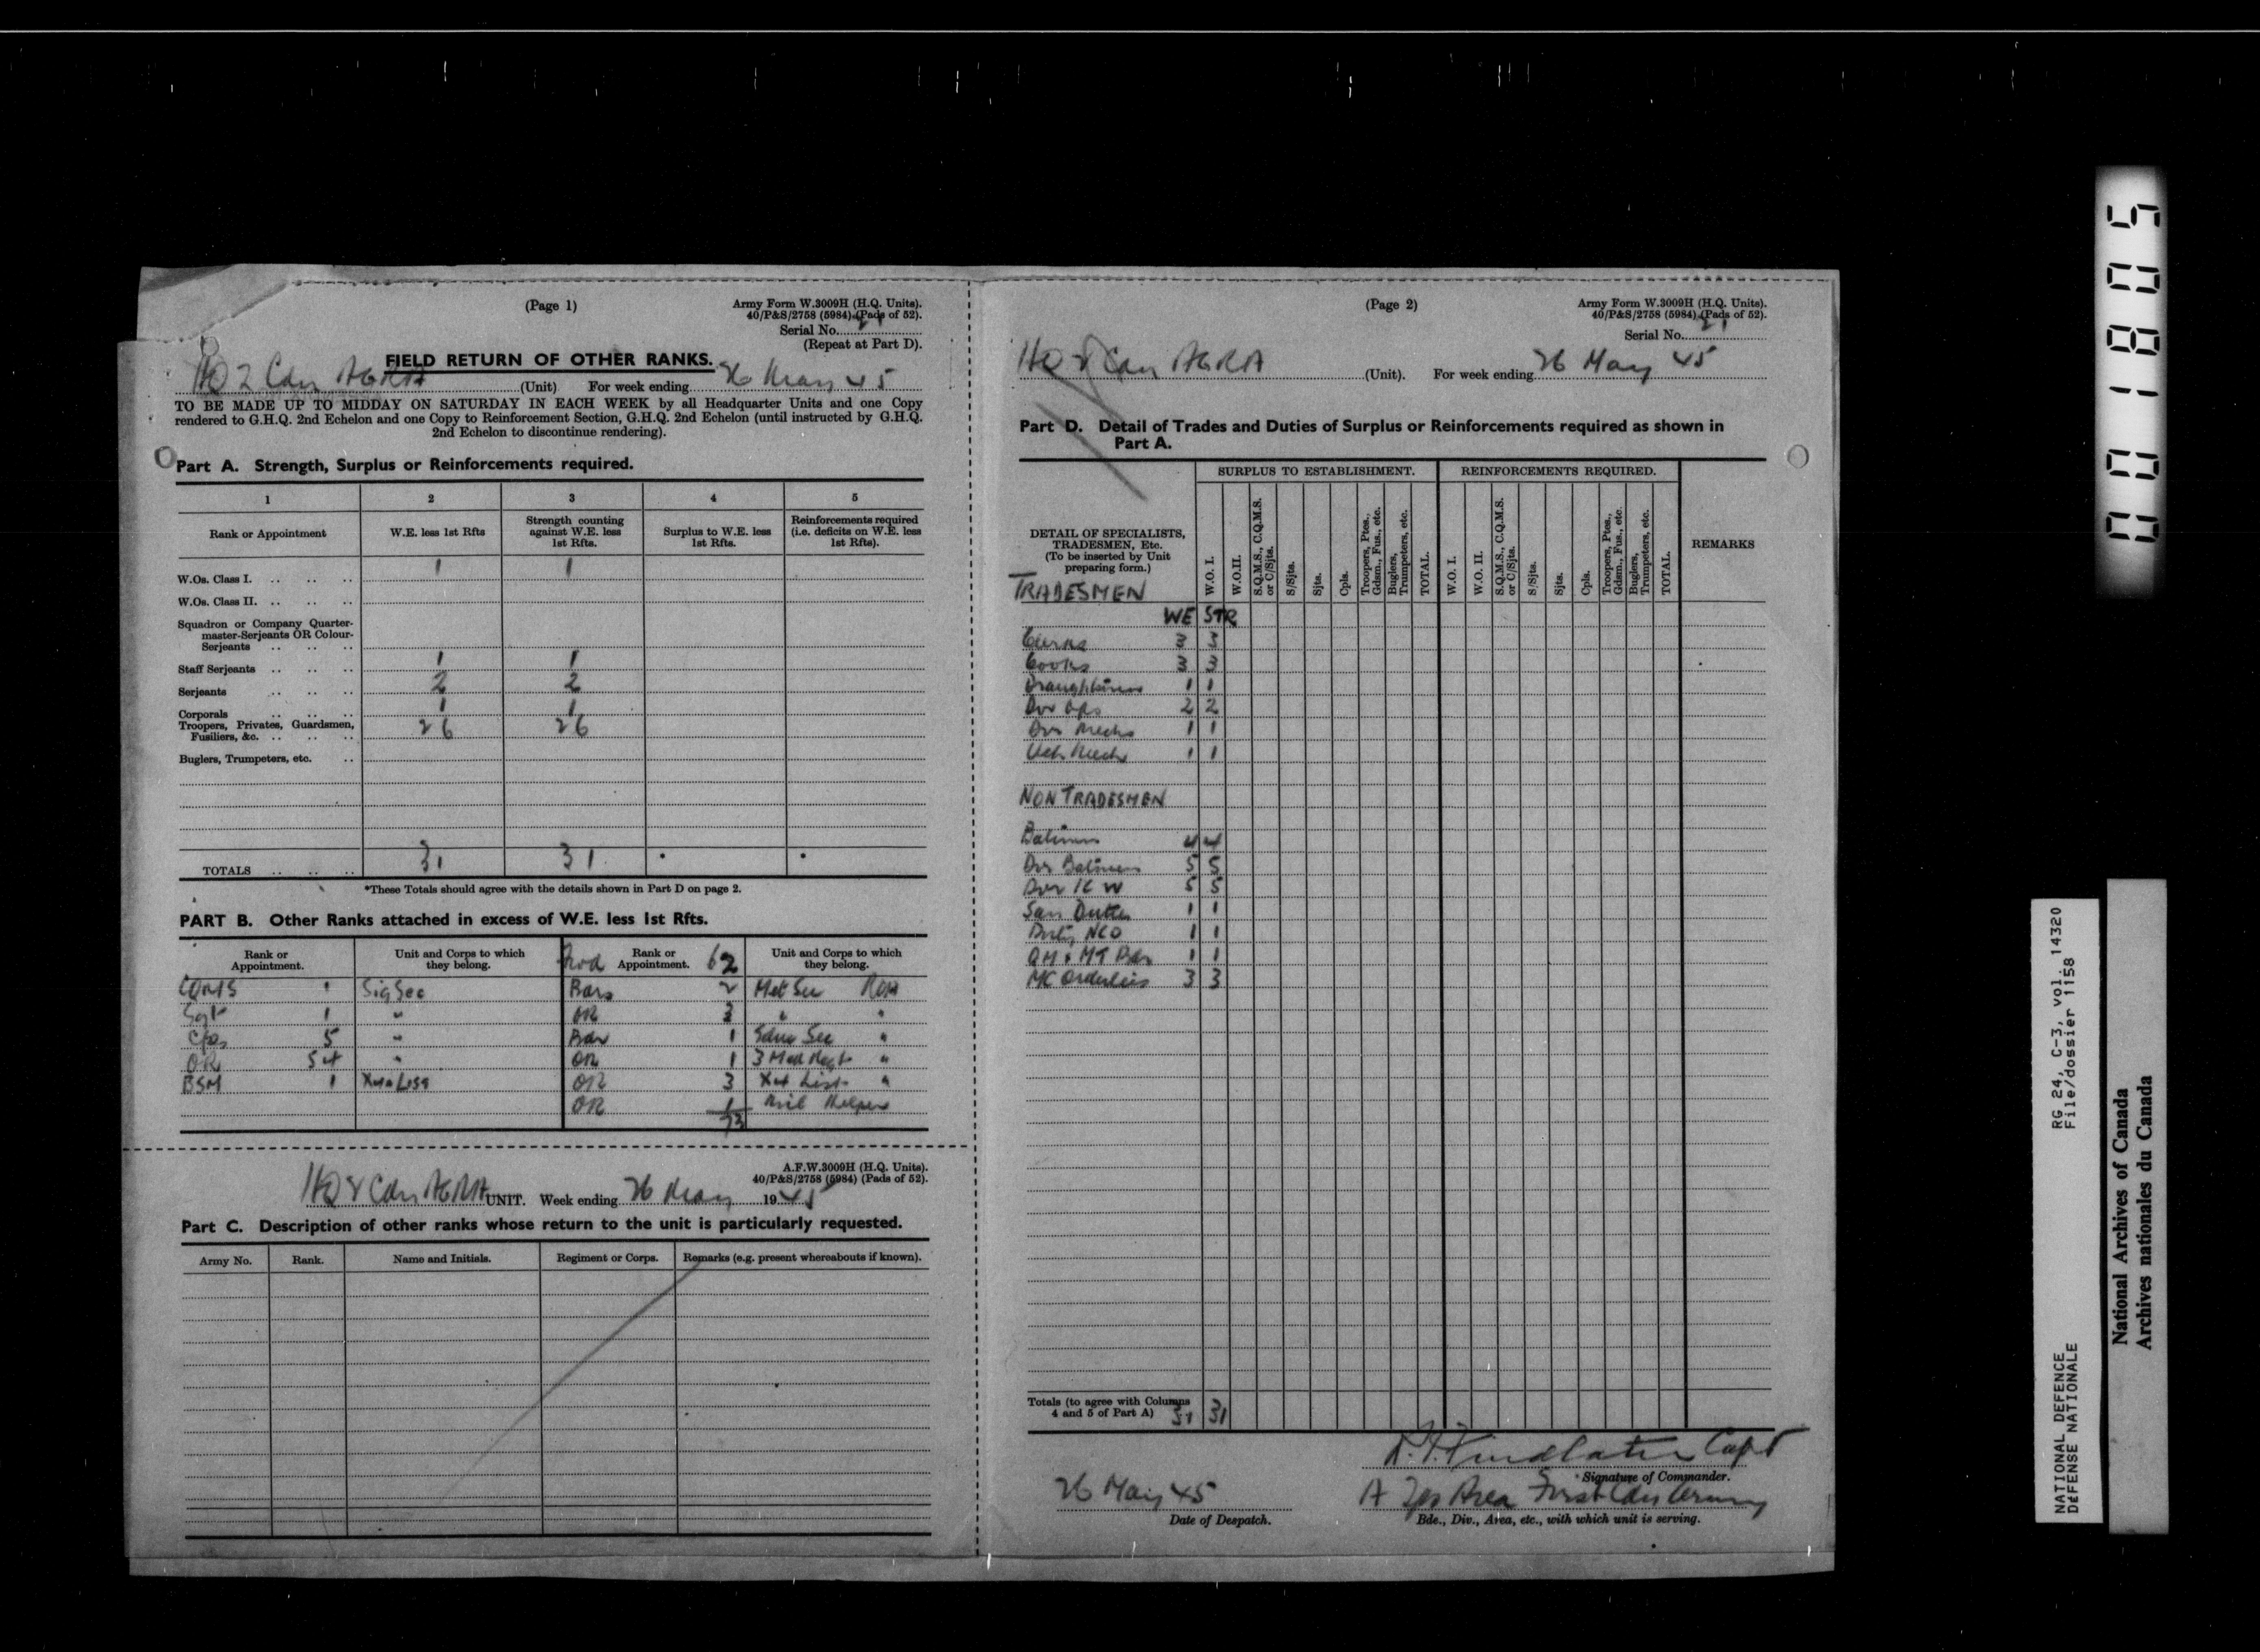 (Page 1)
Army Form W.3009H (H.Q. Units).
40/P&S/2758 (5984) (Pads of 52).
Serial No. 21
(Repeat at Part D).
FIELD RETURN OF OTHER RANKS.
HQ 2 Cdn AGRA (Unit) For week ending 26 May 45
TO BE MADE UP TO MIDDAY ON SATURDAY IN EACH WEEK by all Headquarter Units and one Copy
rendered to G.H.Q. 2nd Echelon and one Copy to Reinforcement Section, G.H.Q. 2nd Echelon (until instructed by G.H.Q.
2nd Echelon to discontinue rendering).
Part A. Strength, Surplus or Reinforcements required.
1 2 3 4 5
Rank or Appointment W.E. less 1st Rfts Strength counting against W.E. less 1st Rfts. Surplus to W.E. less 1st Rfts. Reinforcements required (i.e. deficits on W.E. less 1st Rfts).
W.Os. Class I. .. .. .. 1 1
W.Os. Class II. .. .. ..
Squadron or Company Quarter-
master-Serjeants OR Colour-
Serjeants .. .. ..
Staff Serjeants .. .. .. 1 1
Serjeants .. .. .. 2 2
Corporals .. .. .. 1 1
Troopers, Privates, Guardsmen,
Fusiliers, &c. .. .. .. 26 26
Buglers, Trumpeters, etc. ..
TOTALS .. .. .. 31 31 * *
*These Totals should agree with the details shown in Part D on page 2.
PART B. Other Ranks attached in excess of W.E. less 1st Rfts.
Rank or Appointment. Unit and Corps to which they belong. Fwd Rank or Appointment. 62 Unit and Corps to which they belong.
CQMS 1 Sig Sec Bdrs 2 Met Sec RCA
Sgt 1 " OR 3 " "
Cpls 5 " Bdr 1 Sec "
OR 54 " OR 1 3 Med Regt "
BSM 1 X4 List OR 3 X4 List "
OR 1 Helper
73
A.F.W.3009H (H.Q. Units).
40/P&S/2758 (5984) (Pads of 52).
HQ 2 Cdn AGRA UNIT. Week ending 26 May 1945
Part C. Description of other ranks whose return to the unit is particularly requested.
Army No. Rank. Name and Initials. Regiment or Corps. Remarks (e.g. present whereabouts if known).
(Page 2)
Army Form W.3009H (H.Q. Units).
40/P&S/2758 (5984) (Pads of 52).
Serial No. 21
HQ 2 Cdn AGRA (Unit). For week ending 26 May 45
Part D. Detail of Trades and Duties of Surplus or Reinforcements required as shown in
Part A.
SURPLUS TO ESTABLISHMENT. REINFORCEMENTS REQUIRED.
DETAIL OF SPECIALISTS,
TRADESMEN, Etc.
(To be inserted by Unit
preparing form.)
W.O. I. W.O.II. S.Q.M.S., C.Q.M.S. or C/Sjts. S/Sjts. Sjts. Cpls. Troopers, Ptes., Gdsm., Fus., etc. Buglers, Trumpeters, etc. TOTAL. W.O. I. W.O. II. S.Q.M.S., C.Q.M.S. or C/Sjts. S/Sjts. Sjts. Cpls. Troopers, Ptes., Gdsm., Fus., etc. Buglers, Trumpeters, etc. TOTAL. REMARKS
TRADESMEN
WE STR
Clerks 3 3
Cooks 3 3
Draughtsmen 1 1
Dvr Ops 2 2
Dvr Mechs 1 1
Veh Mech 1 1
NON TRADESMEN
Batmen 4 4
Dvr Batmen 5 5
Dvr IC W 5 5
San Duties 1 1
Duty NCO 1 1
QM & MT Bdr 1 1
MC Orderlies 3 3
Totals (to agree with Columns
4 and 5 of Part A) 31 31
Findlater Capt
Signature of Commander.
26 May 45
Date of Despatch.
A Area First Cdn Army
Bde., Div., Area, etc., with which unit is serving.
001805
RG 24, C-3, vol. 14320
File/dossier 1158
NATIONAL DEFENCE
DÉFENSE NATIONALE
National Archives of Canada
Archives nationales du Canada